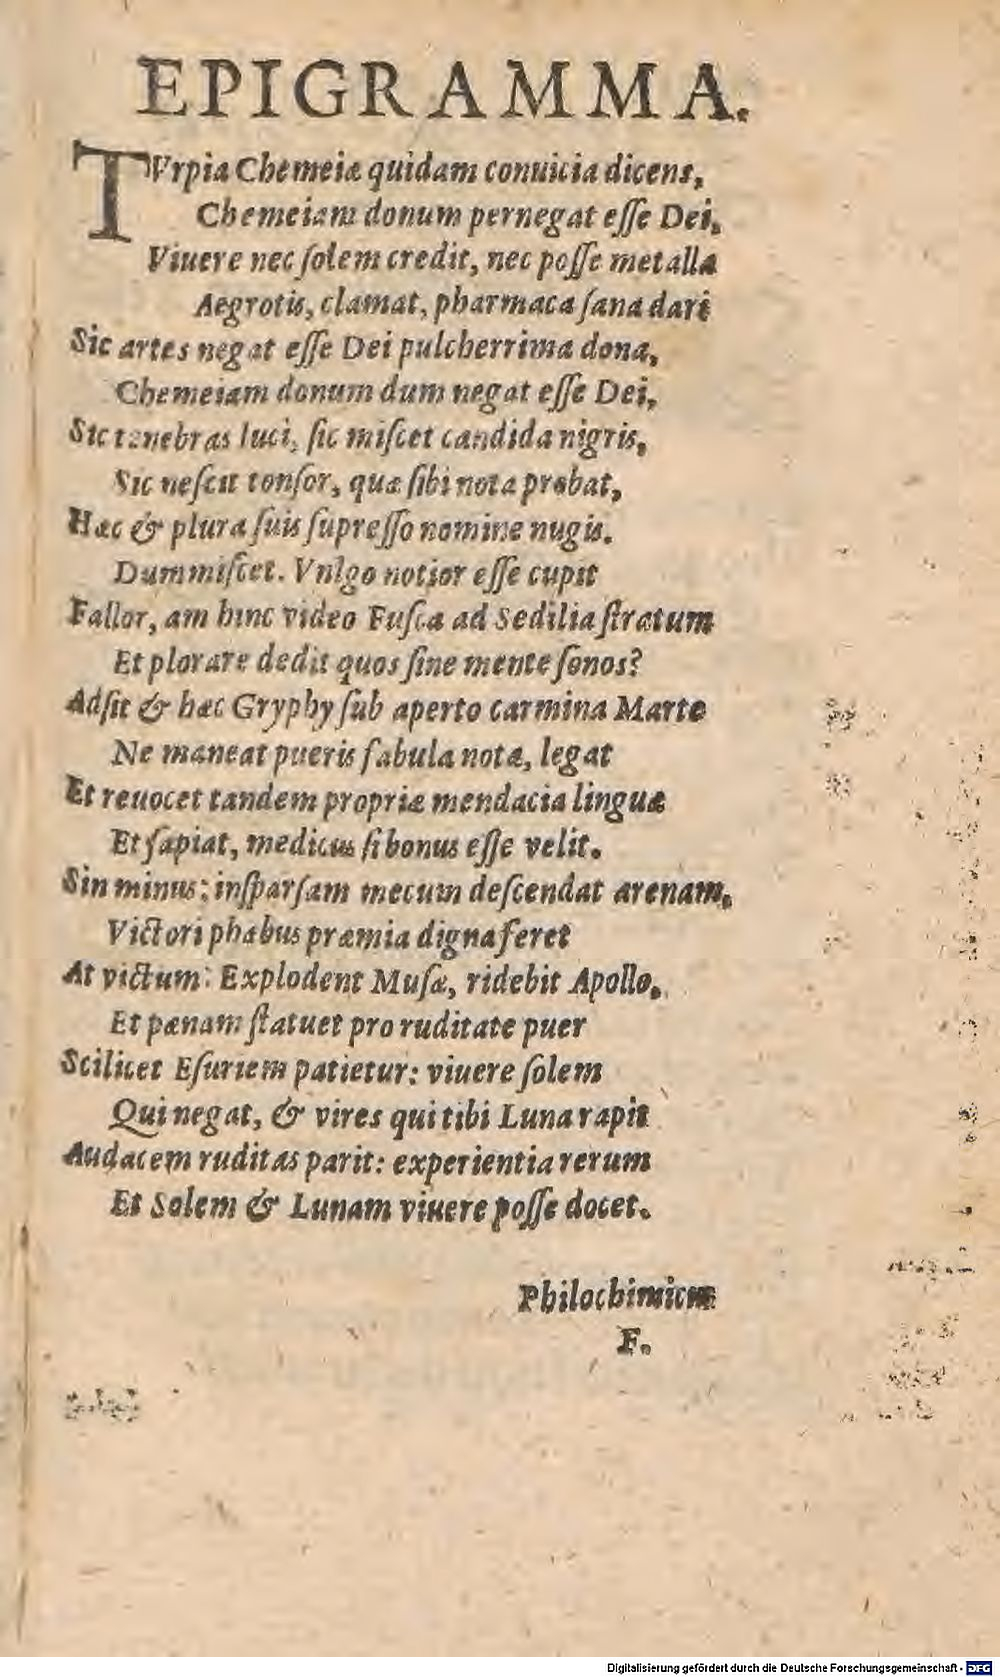 EPIGRAMMA.
TVrpia Chemeiæ quidam conuicia dicens,
Chemeiam donum pernegat eſſe Dei,
Viuere nec ſolem credit, nec poſſe metalla
Aegrotis, clamat, pharmaca ſana dari
Sic artes negat eſſe Dei pulcherrima dona,
Chemeiam donum dum negat eſſe Dei,
Sic tenebras luci, ſic miſcet candida nigris,
Sic neſcit tonſor, quæ ſibi nota probat,
Hæc & plura ſuis ſupreſſo nomine nugis.
Dum miſcet. Vulgo notior eſſe cupit
Fallor, am hinc video Fuſca ad Sedilia ſtratum
Et plorare dedit quos ſine mente ſonos?
Adſit & hæc Gryphy ſub aperto carmina Marte
Ne maneat pueris fabula nota, legat
Et reuocet tandem propriæ mendacia linguæ
Et ſapiat, medicus ſi bonus eſſe velit.
Sin minus: inſparſam mecum deſcendat arenam,
Victori phæbus præmia digna feret
At victum: Explodent Muſæ, ridebit Apollo,
Et pœnam ſtatuet pro ruditate puer
Scilicet Eſuriem patietur: viuere ſolem
Qui negat, & vires qui tibi Luna rapit
Audacem ruditas parit: experientia rerum
Et Solem & Lunam viuere poſſe docet.
Philochimicus
F.
Digitalisierung gefördert durch die Deutsche Forschungsgemeinschaft - DFG